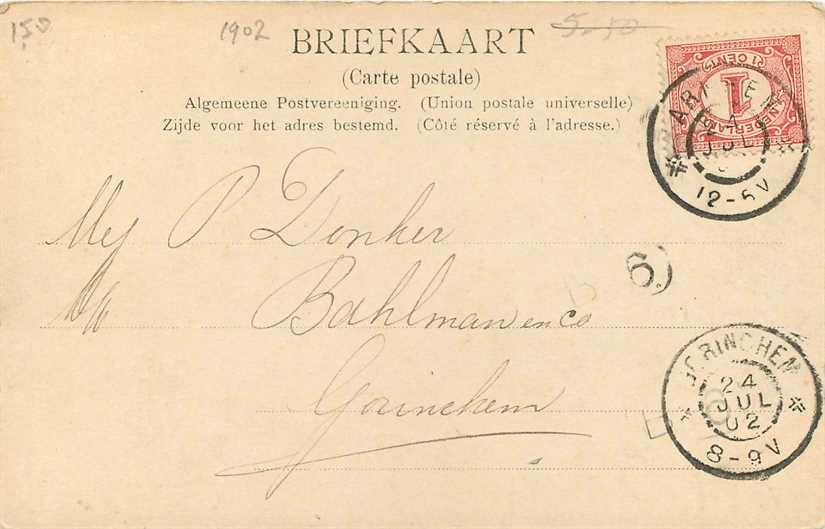 150 1902 5-50
BRIEFKAART
(Carte postale)
Algemeene Postvereeniging. (Union postale universelle)
Zijde voor het adres bestemd. (Côté réservé à l'adresse.)
1 CENT
1
NEDERLAND
24
JUL
12-5V
Mej P Donker
Bahlman en co
6.)
Gorinchem
GORINCHEM
24
JUL
02
8-9V